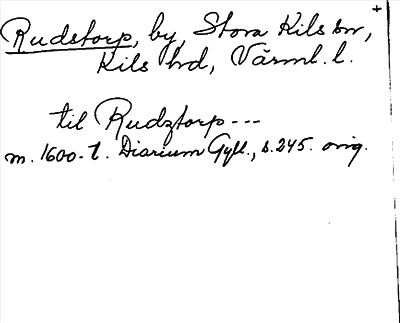 +
Rudstorp, by, Stora Kils sn,
Kils hd, Värml. l.
til Rudztorp ---
m. 1600-t. Diarium Gyll., s. 245. orig.